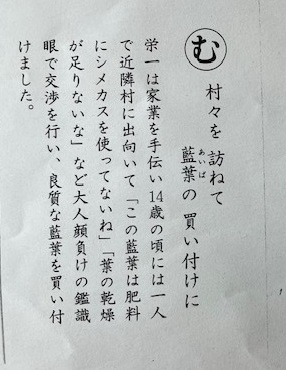 む
村々を訪ねて
藍葉の買い付けに
あいば
栄一は家業を手伝い14歳の頃には一人
で近隣村に出向いて「この藍葉は肥料
にシメカスを使ってないね」「葉の乾燥
が足りないな」など大人顔負けの鑑識
眼で交渉を行い、良質な藍葉を買い付
けました。